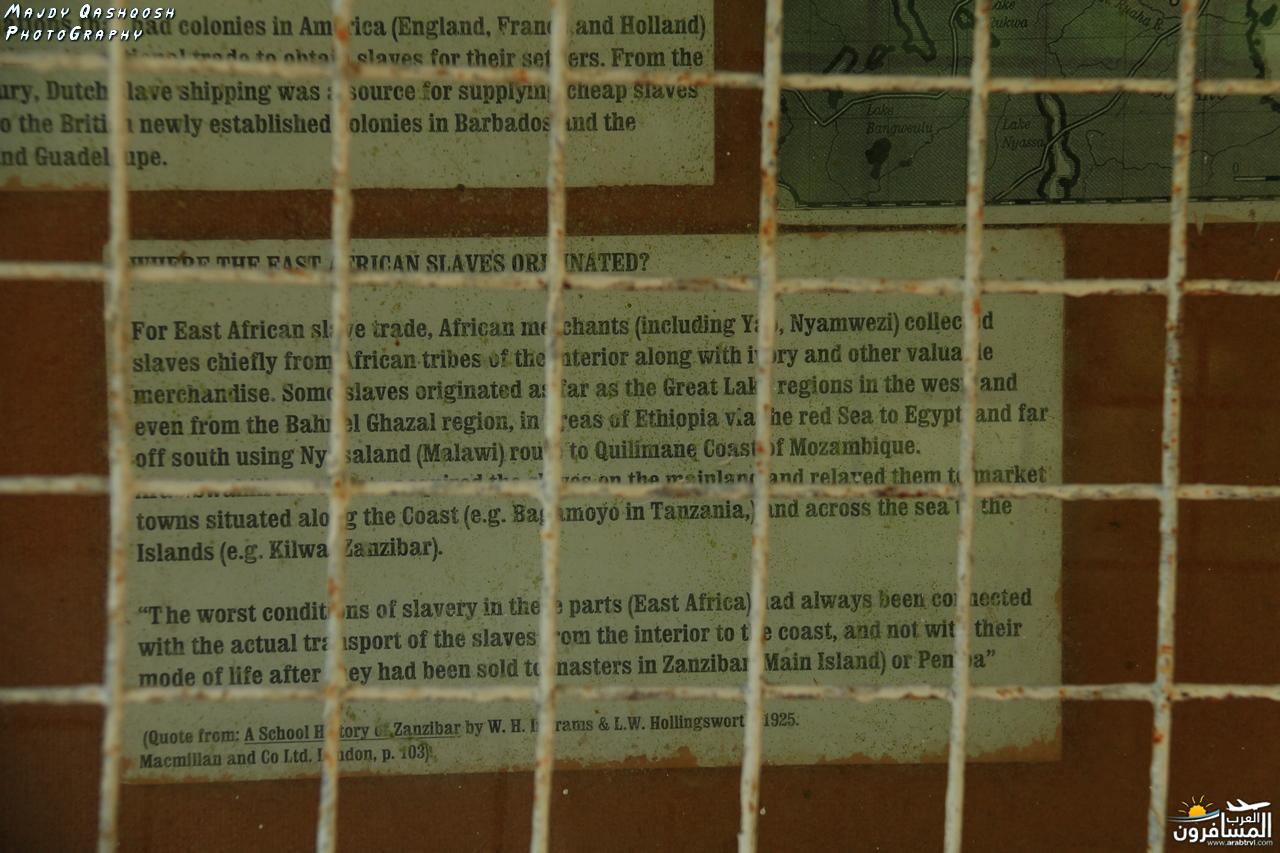 MAJDY QASHQOSH
PHOTOGRAPHY
had colonies in America (England, France and Holland)
trade to obtain slaves for their settlers. From the
Dutch slave shipping was a source for supplying cheap slaves
to the British newly established colonies in Barbados and the
and Guadeloupe.
Lake
Rukwa
Ruaha R.
Lake
Bangweulu
Lake
Nyassa
0
WHERE THE EAST AFRICAN SLAVES ORIGINATED?
For East African slave trade, African merchants (including Yao, Nyamwezi) collected
slaves chiefly from African tribes of the interior along with ivory and other valuable
merchandise. Some slaves originated as far as the Great Lake regions in the west and
even from the Bahr el Ghazal region, in areas of Ethiopia via the red Sea to Egypt and far
off south using Nyasaland (Malawi) route to Quilimane Coast of Mozambique.
the slaves on the mainland and relayed them to market
towns situated along the Coast (e.g. Bagamoyo in Tanzania,) and across the sea to the
Islands (e.g. Kilwa, Zanzibar).
“The worst conditions of slavery in these parts (East Africa) had always been connected
with the actual transport of the slaves from the interior to the coast, and not with their
mode of life after they had been sold to masters in Zanzibar (Main Island) or Pemba”
(Quote from: A School History of Zanzibar by W. H. Ingrams & L.W. Hollingsworth 1925.
Macmillan and Co Ltd. London, p. 103)
العرب
المسافرون
www.arabtrvl.com